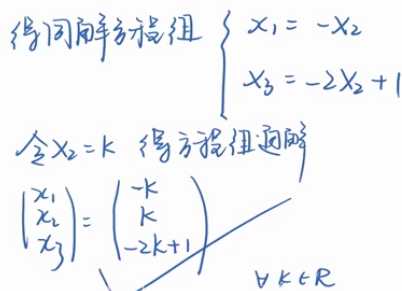 得同解方程组 { x₁ = -x₂
x₃ = -2x₂ + 1
令x₂ = k 得方程组通解
(x₁ x₂ x₃) = (-k k -2k+1)
∀ k ∈ R